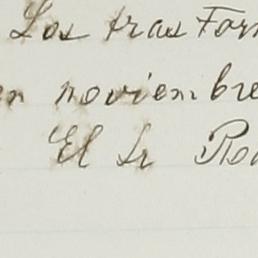 Los tras For
en noviembre
El Sr Ro